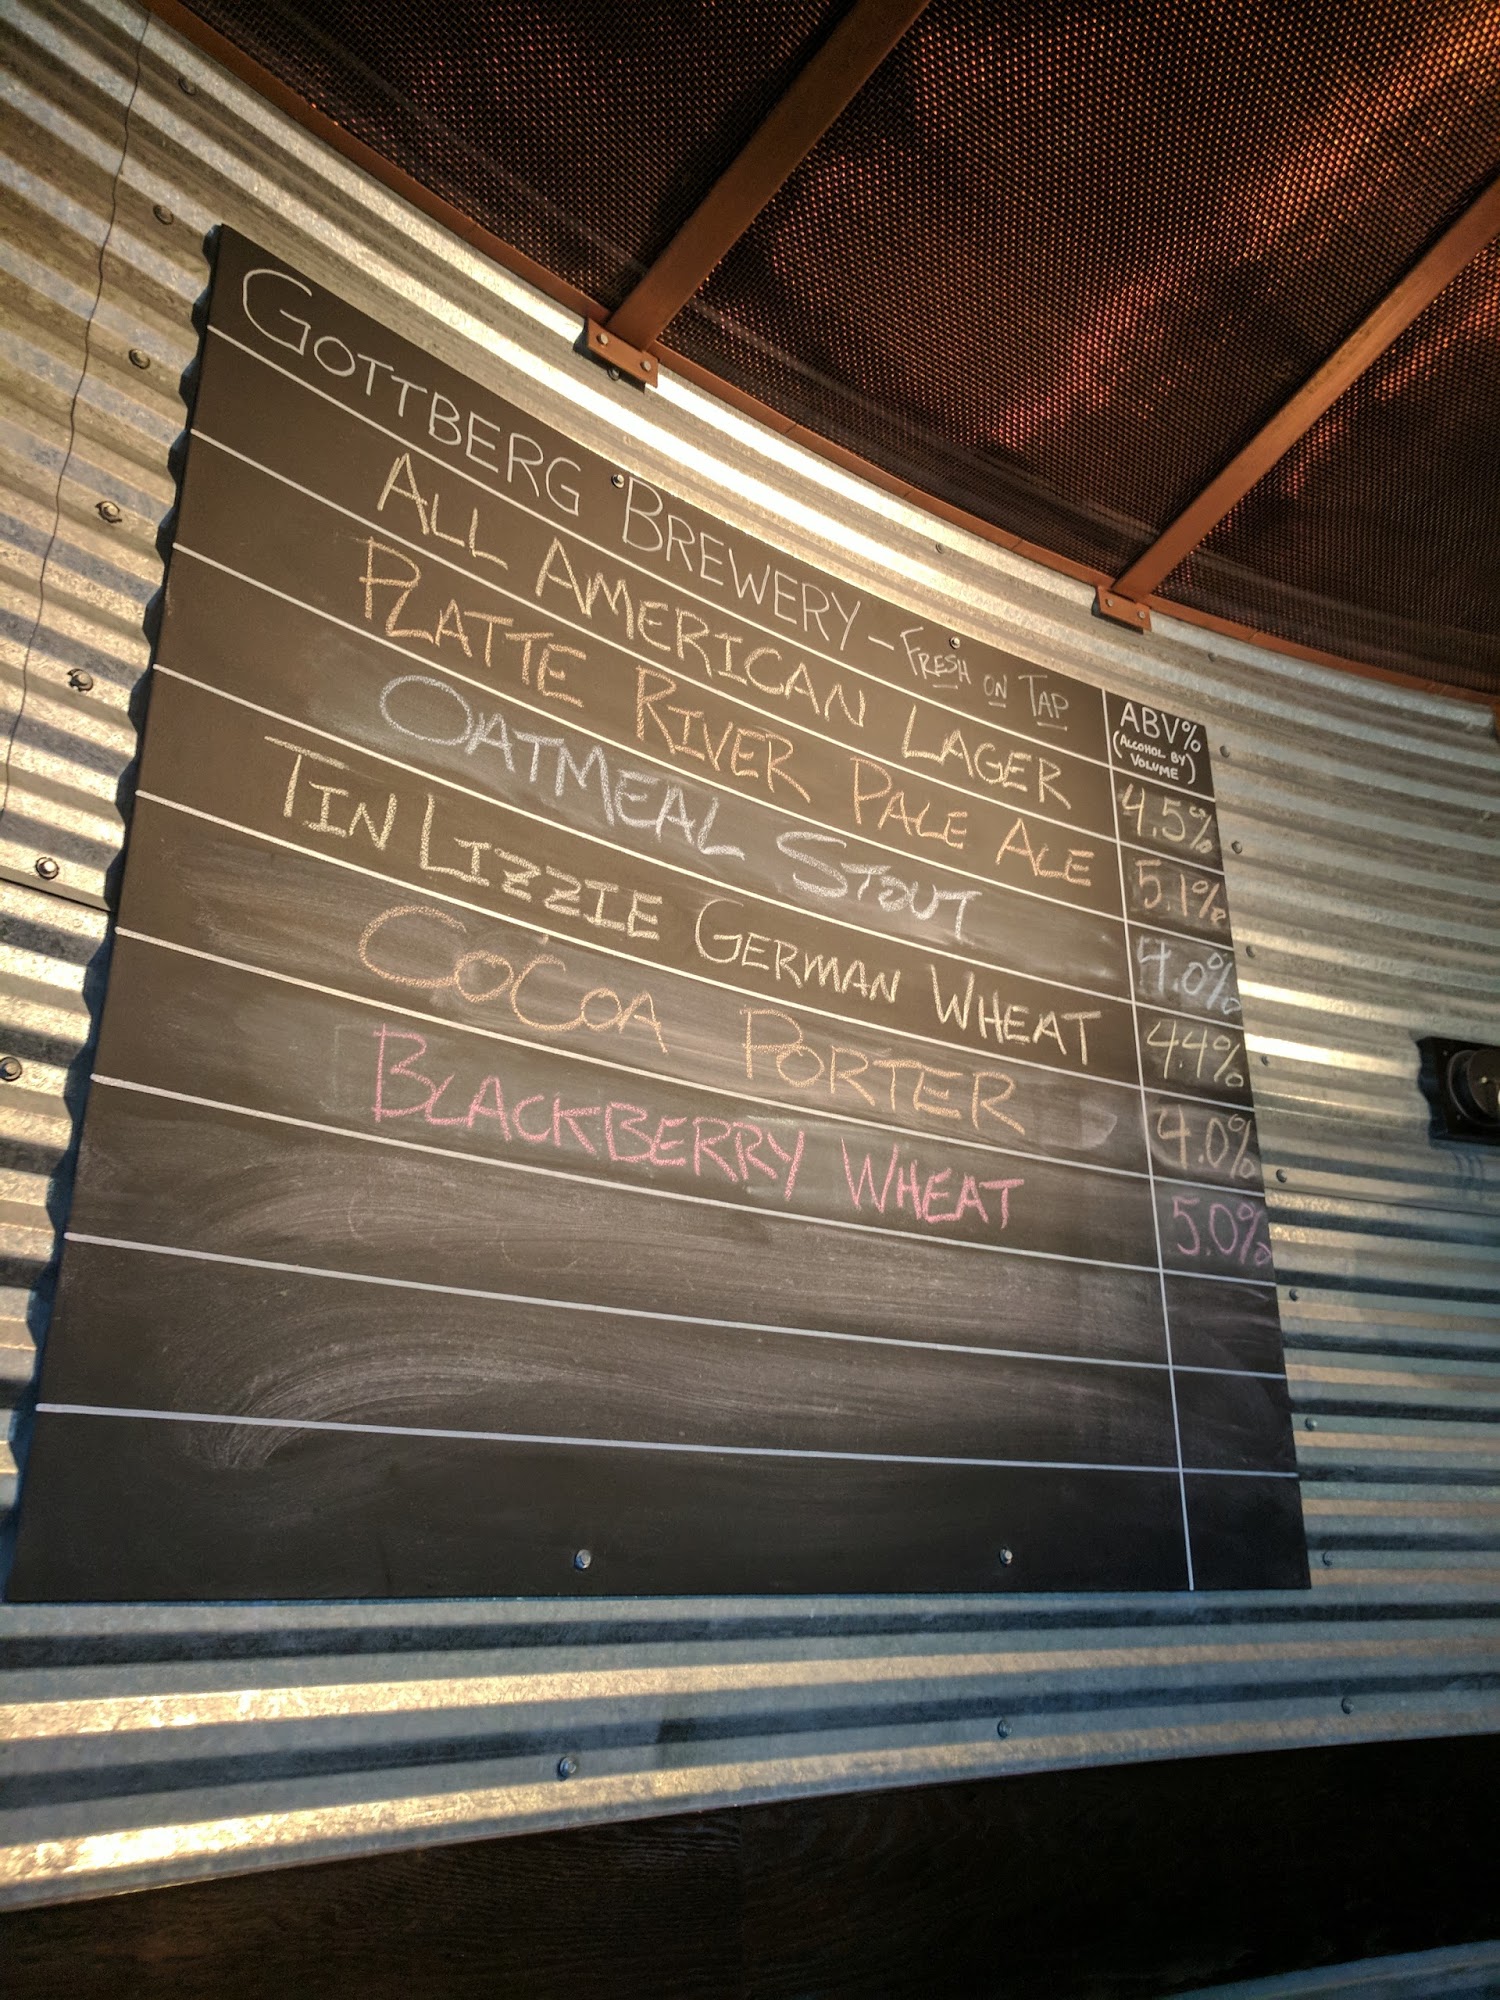 GOTTBERG BREWERY - FRESH ON TAP
ABV%
(ALCOHOL BY
VOLUME)
ALL AMERICAN LAGER 4.5%
PLATTE RIVER PALE ALE 5.1%
OATMEAL STOUT 4.0%
TIN LIZZIE GERMAN WHEAT 4.4%
COCOA PORTER 4.0%
BLACKBERRY WHEAT 5.0%